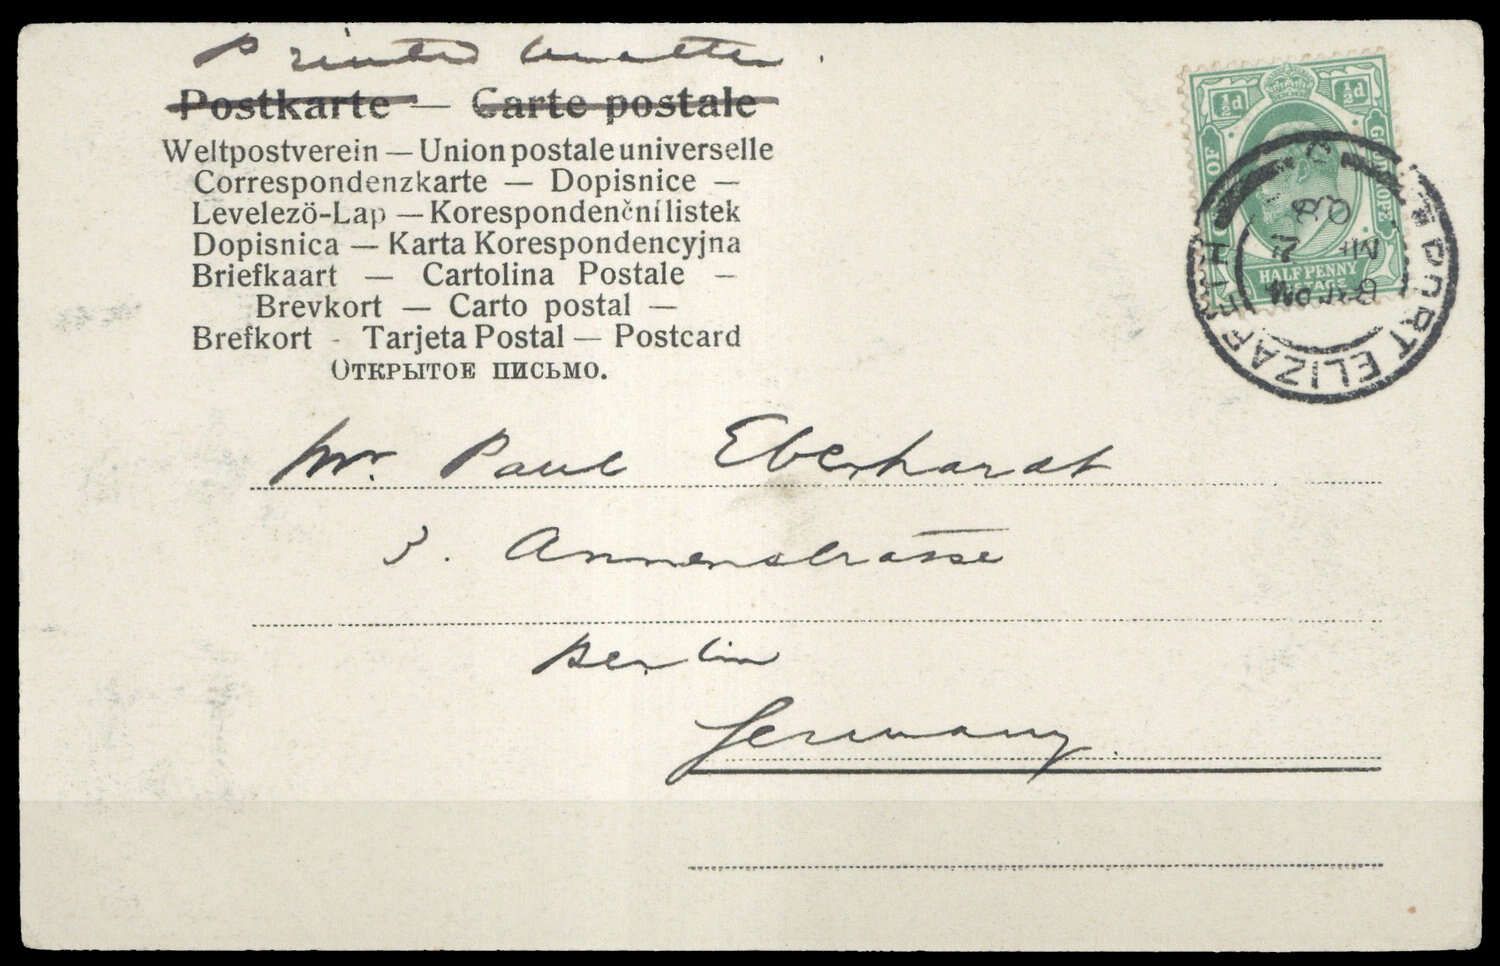 Printed matter.
Postkarte — Carte postale
Weltpostverein — Union postale universelle
Correspondenzkarte — Dopisnice —
Levelezö-Lap — Korespondenční listek
Dopisnica — Karta Korespondencyjna
Briefkaart — Cartolina Postale —
Brevkort — Carto postal —
Brefkort - Tarjeta Postal — Postcard
Открытое письмо.
½d ½d
OF GOOD HOPE
HALFPENNY
PORT ELIZABETH
08
Mr. Paul Eberhardt
3. Annenstrasse
Berlin
Germany.